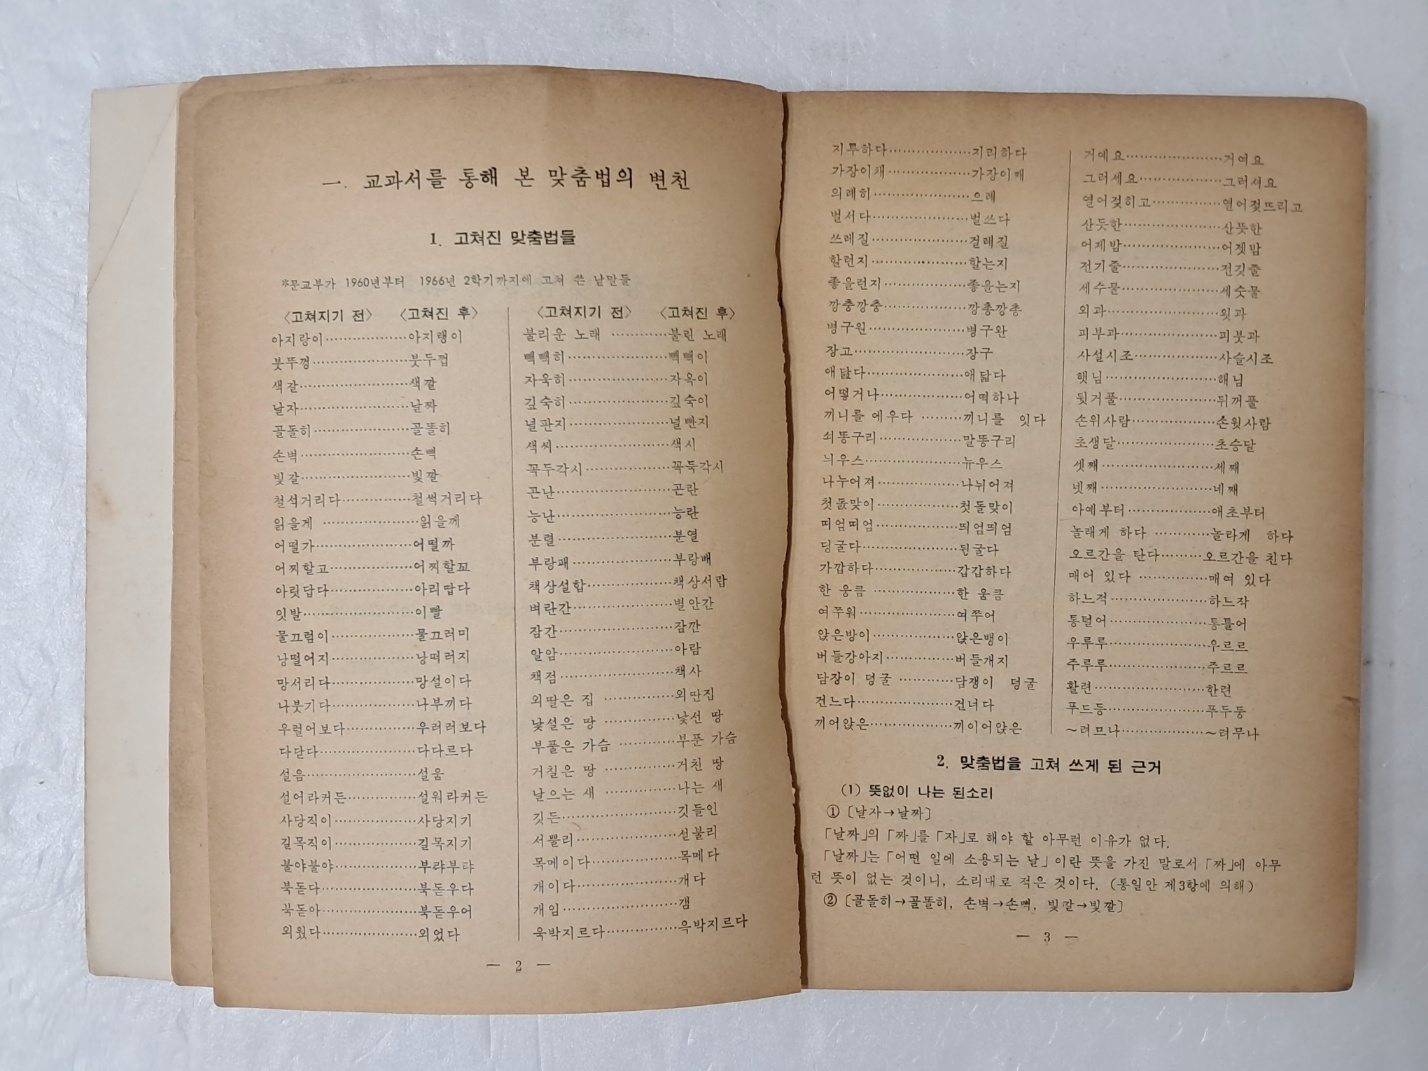 一. 교과서를 통해 본 맞춤법의 변천
1. 고쳐진 맞춤법들
※문교부가 1960년부터 1966년 2학기까지에 고쳐 쓴 낱말들
〈고쳐지기 전〉 〈고쳐진 후〉
아지랑이………………아지랭이
붓뚜껑………………붓두껍
색갈………………색깔
날자………………날짜
골돌히………………골똘히
손벽………………손뼉
빛갈………………빛깔
철석거리다…………철썩거리다
읽을게 ………………읽을께
어떨가………………어떨까
어찌할고……………어찌할꼬
아릿답다……………아리땁다
잇발………………이빨
물끄럼이……………물끄러미
낭떨어지……………낭떠러지
망서리다……………망설이다
나붓기다……………나부끼다
우럴어보다…………우러러보다
다닫다………………다다르다
설음………………설움
설어라커든…………설워라커든
사당직이……………사당지기
길목직이……………길목지기
불야불야……………부랴부랴
북돋다………………북돋우다
북돋아………………북돋우어
외웠다………………외었다
〈고쳐지기 전〉 〈고쳐진 후〉
불리운 노래 …………불린 노래
빽빽히………………빽빽이
자욱히………………자옥이
깊숙히………………깊숙이
널판지………………널빤지
색씨………………색시
꼭두각시……………꼭둑각시
곤난………………곤란
능난………………능란
분렬………………분열
부랑패………………부랑배
책상설합……………책상서랍
벼란간………………별안간
잠간………………잠깐
알암………………아람
책점………………책사
외딸은 집 …………외딴집
낯설은 땅 …………낯선 땅
부풀은 가슴 …………부푼 가슴
거칠은 땅 …………거친 땅
날으는 새 …………나는 새
깃든………………깃들인
서뿔리………………섣불리
목메이다……………목메다
개이다………………개다
개임………………갬
욱박지르다…………윽박지르다
— 2 —
지루하다………………지리하다
가장이재………………가장이째
의례히………………으례
벌서다………………벌쓰다
쓰레질………………걸레질
할런지………………할는지
좋을런지……………좋을는지
깡충깡충……………깡총깡총
병구원………………병구완
장고………………장구
애닲다………………애닯다
어떻거나……………어떡하나
끼니를 에우다 ………끼니를 잇다
쇠똥구리……………말똥구리
늬우스………………뉴우스
나누어져……………나뉘어져
첫돐맞이……………첫돌맞이
띠엄띠엄……………띄엄띄엄
딩굴다………………뒹굴다
가깝하다……………갑갑하다
한 웅큼 ……………한 움큼
여쭈워………………여쭈어
앉은방이……………앉은뱅이
버들강아지…………버들개지
담장이 덩굴 ………담쟁이 덩굴
건느다………………건너다
끼어앉은……………끼이어앉은
거예요………………거여요
그러세요……………그러셔요
열어젖히고…………열어젖뜨리고
산듯한………………산뜻한
어제밤………………어젯밤
전기줄………………전깃줄
세수물………………세숫물
외과………………욋과
피부과………………피붓과
사설시조……………사슬시조
햇님………………해님
뒷거풀………………뒤꺼풀
손위사람……………손윗사람
초생달………………초승달
셋째………………세째
넷째………………네째
아예부터……………애초부터
놀래게 하다 ………놀라게 하다
오르간을 탄다………오르간을 친다
매어 있다 …………매여 있다
하느적………………하느작
통털어………………통틀어
우루루………………우르르
주루루………………주르르
활련………………한련
푸드등………………푸두둥
～려므나……………～려무나
2. 맞춤법을 고쳐 쓰게 된 근거
(1) 뜻없이 나는 된소리
① 〔날자→날짜〕
「날짜」의 「짜」를 「자」로 해야 할 아무런 이유가 없다.
「날짜」는 「어떤 일에 소용되는 날」이란 뜻을 가진 말로서 「짜」에 아무
런 뜻이 없는 것이니, 소리대로 적은 것이다. (통일안 제3항에 의해)
② 〔골돌히→골똘히, 손벽→손뼉, 빛갈→빛깔〕
— 3 —